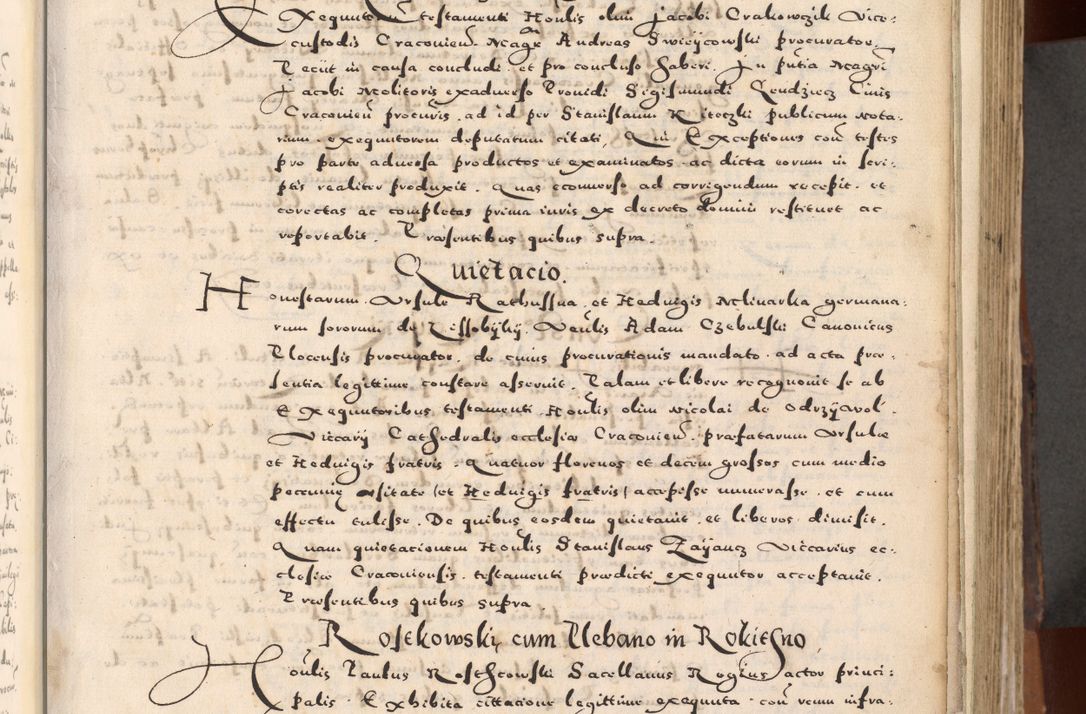 Exequutorum testamenti Honlis olim Jacobi Crakowczik Vice-
custodis Craconien Magr Andreas Swieijcowski procurator
Reciit in causa concludi et pro concluso haberi. In pntia Magri
Jacobi Molitoris exaduerso Prouidi Sigismundi Gendziecz Ciuis
Craconien procuris, ad id per Stanislaum Kiteczki publicum Nota-
rium exequutorem deputatum citati, Qui Exceptiones con testes
pro parte aduersa productos et examinatos ac dicta eorum in scri-
ptis realiter produxit. Quas econuerso ad corrigendum recepit. et
corectas ac completas prima iuris ex decreto Domini restituet ac
reportabit. Præsentibus quibus supra.
Quietacio.
Honestarum Vrsule Rathussna et Heduigis Mlinarka germana-
rum sororum de Lissobijkij. Venlis Adam Czebulski Canonicus
Plocensis procurator. de cuius procurationis mandato ad acta præ-
sentia legittime constare asseruit. Palam et libere recognouit se ab
Exequutoribus testamenti Honlis olim Nicolai de Odrzijwol
Viccarij Cathedralis ecclesiæ Craconien præfatarum Vrsulæ
et Heduigis fratris. Quatuor florenos et decem grossos cum medio
pecuniæ vsitate (et Heduigis fratris) accepisse numerasse et cum
effectu tulisse. De quibus eosdem quietauit et liberos dimisit.
Quam quietacionem Honlis Stanislaus Zaijancz Viccarius ec-
clesiæ Craconiensis testamenti prædicti exequutor acceptauit.
Præsentibus quibus supra.
Rosckowski cum Plebano in Rokithno
Honlis Paulus Roschcowski Sacellanus Regius actor princi-
palis. Exhibita cittacione legittime exequuta con verum infra-